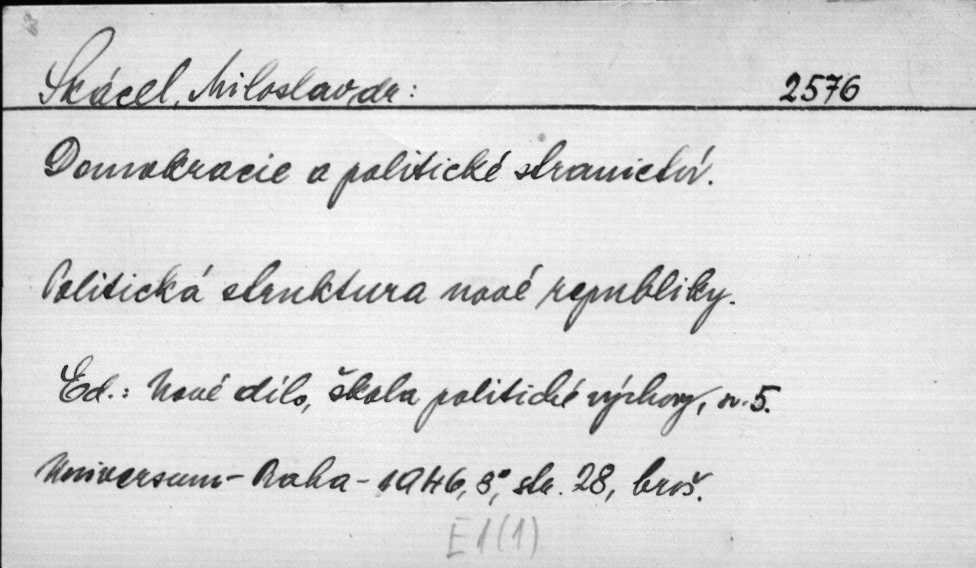 Skácel, Miloslav, dr: 2576
Demokracie a politické stranictví.
Politická struktura nové republiky.
Ed.: Nové dílo, škola politické výchovy, sv. 5.
Universum - Praha - 1946, 8°, str. 28, brož.
E 1 (1)